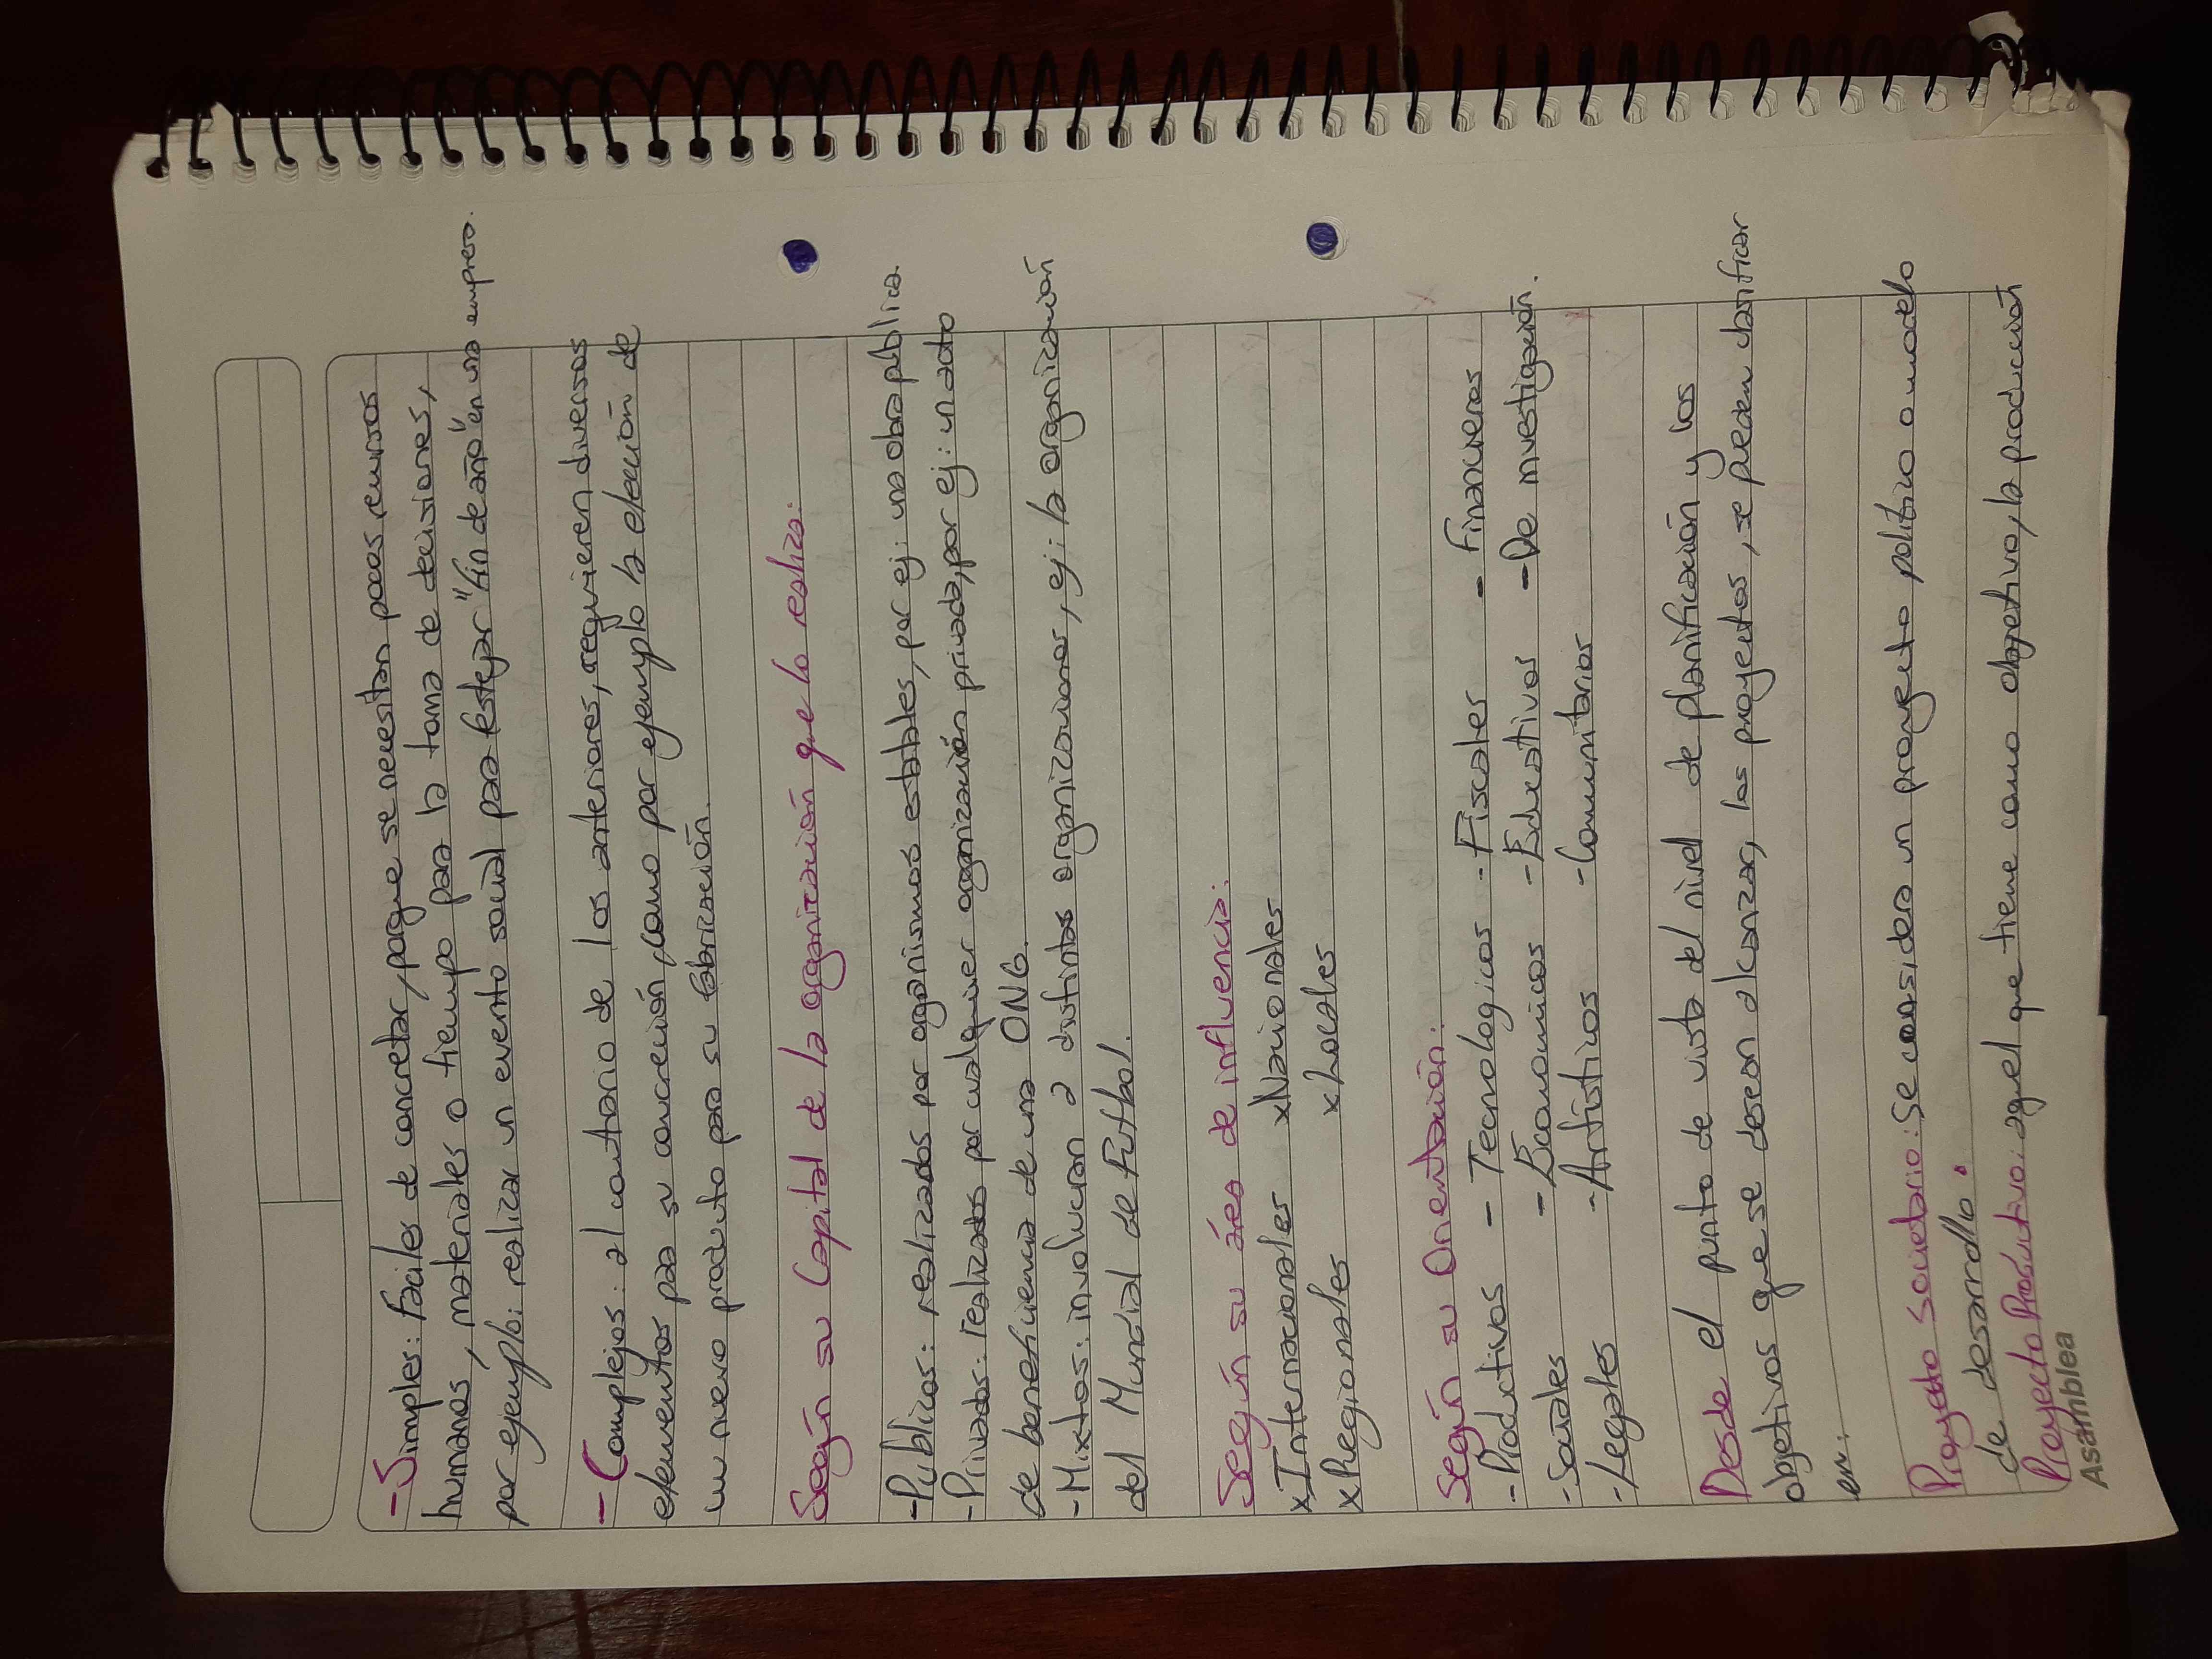 -Simples: Fáciles de concretar, porque se necesitan pocos recursos
humanos, materiales o tiempo para la toma de decisiones,
por ejemplo: realizar un evento social para festejar "fin de año" en una empresa.
-Complejos: al contrario de los anteriores, requieren diversos
elementos para su concreción, como por ejemplo la elección de
un nuevo producto para su fabricación.
Según su Capital de la organización que lo realiza:
-Públicos: realizados por organismos estatales, por ej: una obra pública.
-Privados: realizados por cualquier organización privada, por ej: un acto
de beneficiencia de una ONG.
-Mixtos: involucran a distintas organizaciones, ej: la organización
del Mundial de Futbol.
Según su área de influencia:
xInternacionales xNacionales
xRegionales xLocales
Según su Orientación:
-Productivos - Tecnologicos -Fiscales - Financieros
-Sociales - Económicos -Educativos -De investigación.
-Legales -Artísticos -Comunitarios
Desde el punto de vista del nivel de planificación y los
objetivos que se deseen alcanzar, los proyectos, se pueden clasificar
en:
Proyecto societario: Se considera un proyecto politico o modelo
de desarrollo.
Proyecto Productivo: aquel que tiene como objetivo, la producción
Asamblea